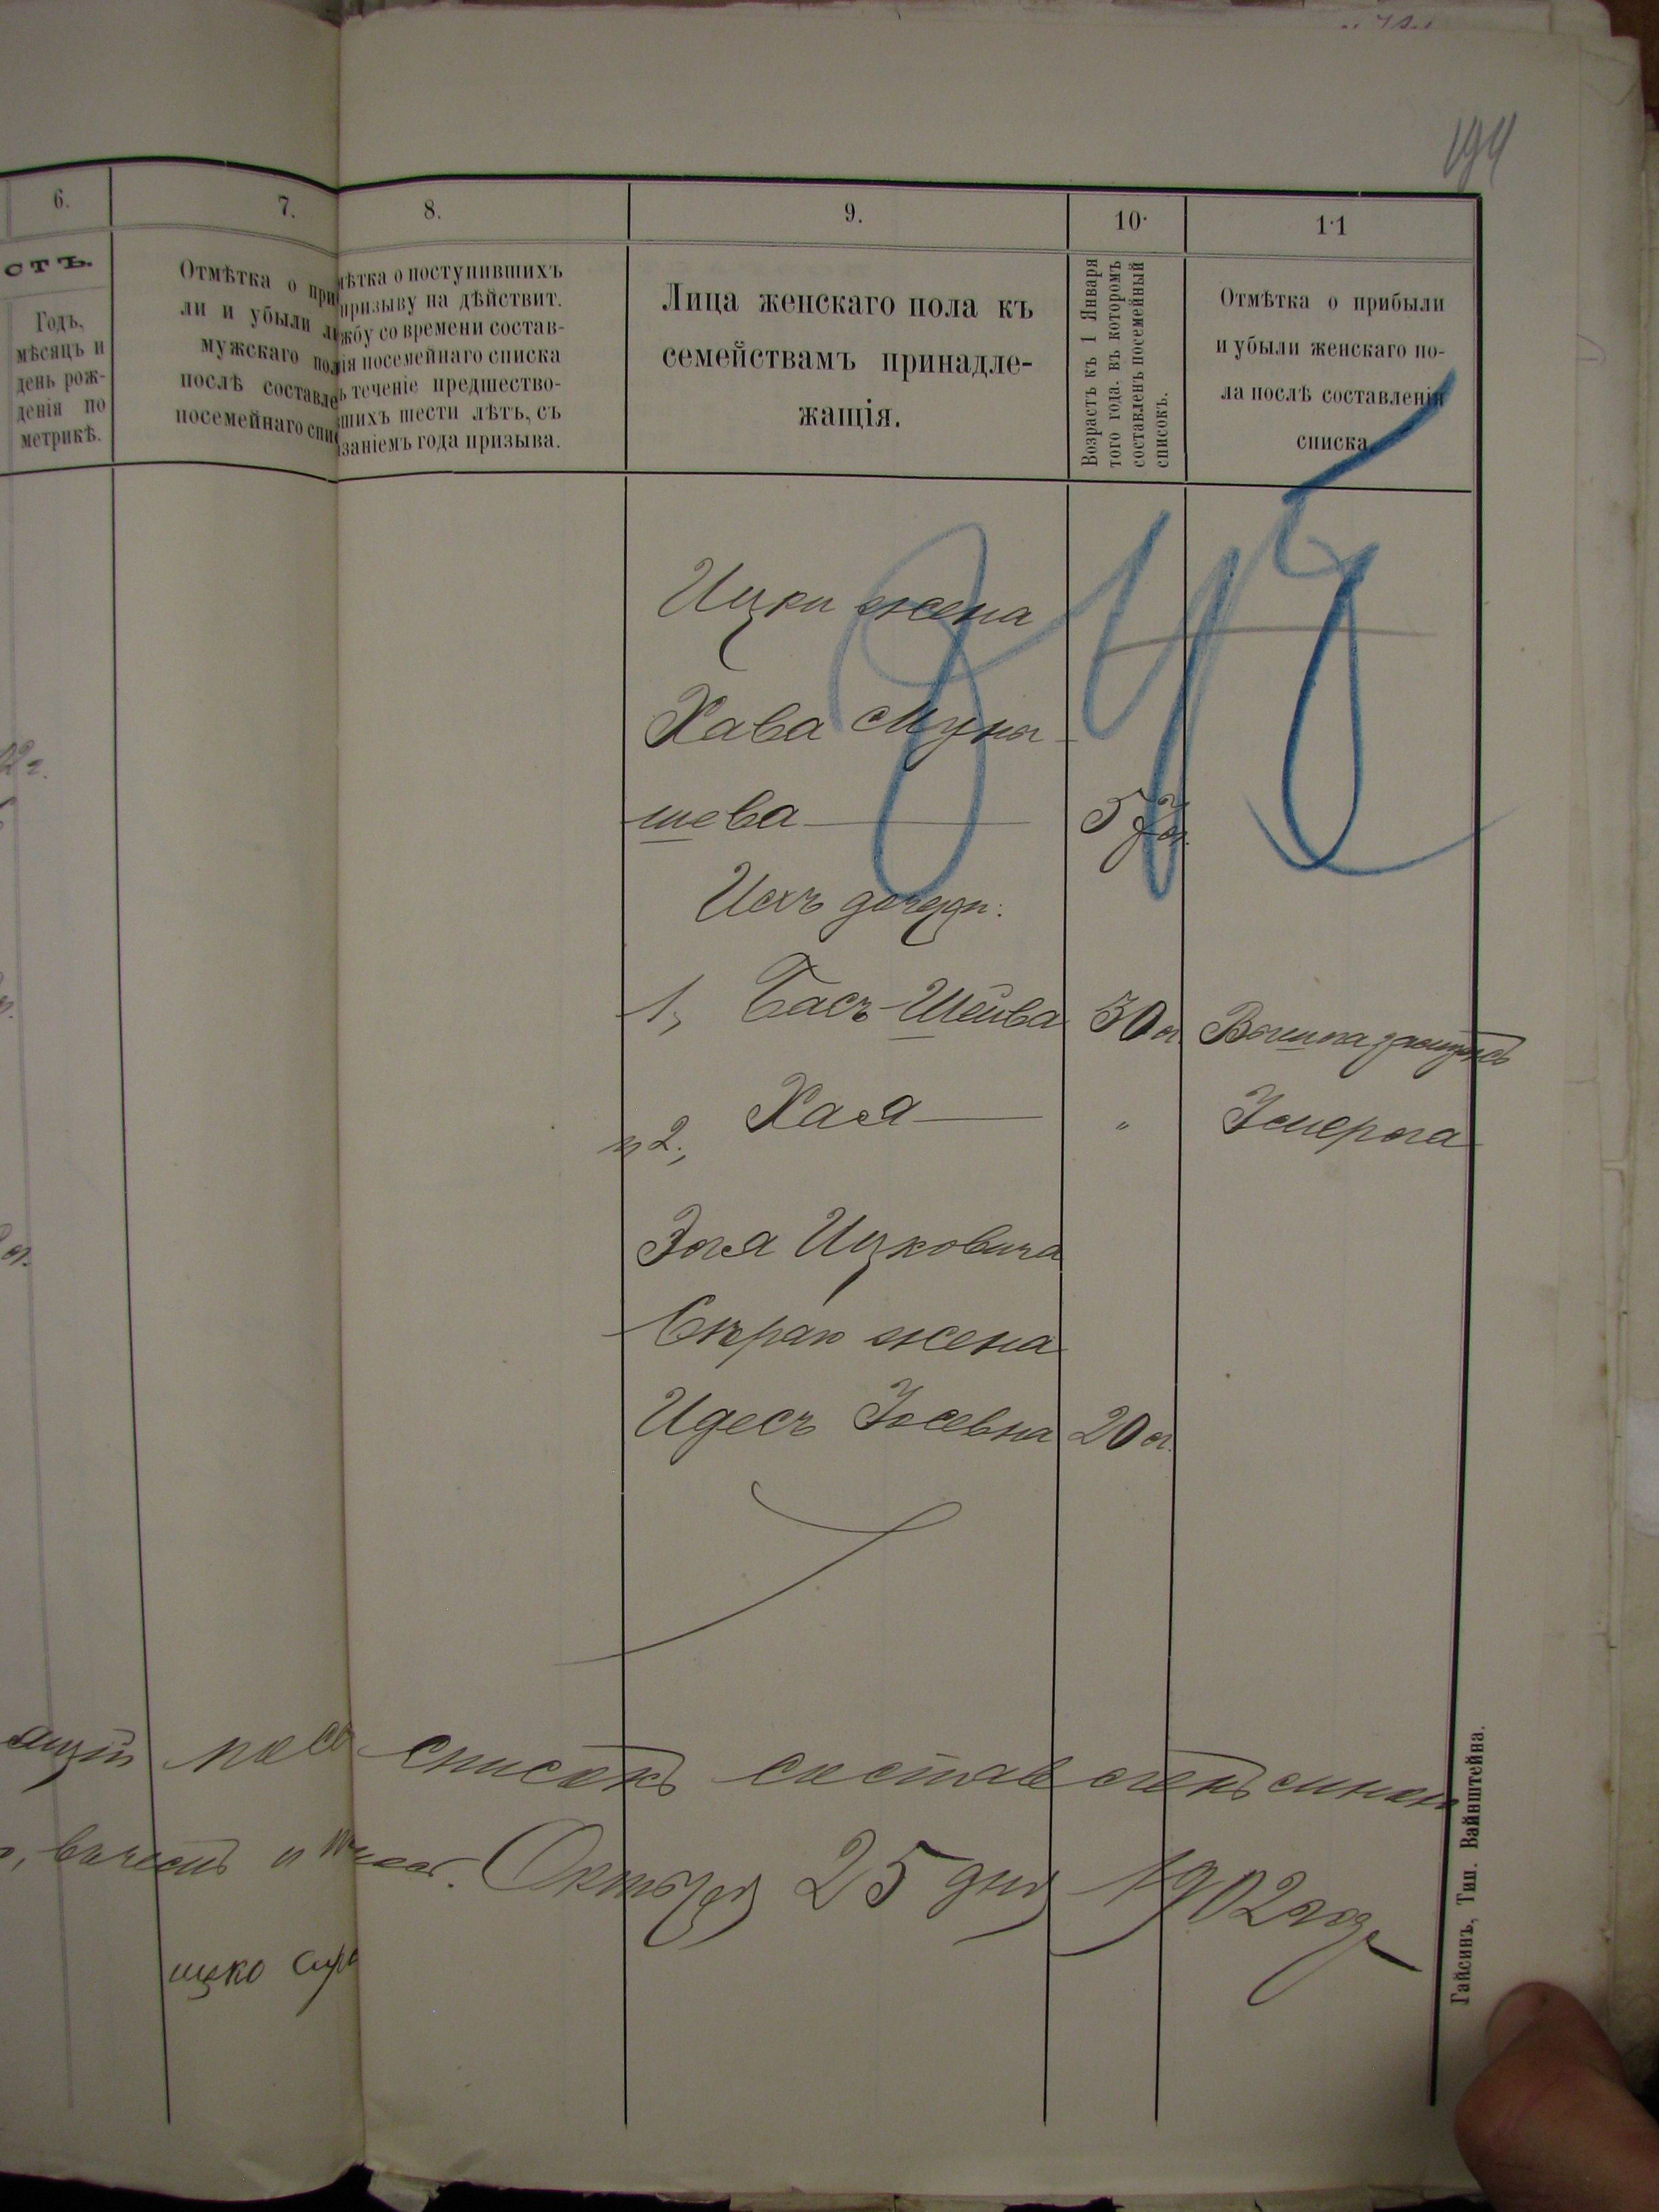 194
6.
7.
8.
9.
10.
11
СТЪ.
Годъ,
мѣсяцъ и
день рож-
денія по
метрикѣ.
Отмѣтка о при
ли и убыли
мужскаго пол
послѣ составле
посемейнаго спи
мѣтка о поступившихъ
призыву на дѣйствит.
жбу со времени состав-
ія посемейнаго списка
ъ теченіе предшество-
шихъ шести лѣтъ, съ
азаніемъ года призыва.
Лица женскаго пола къ
семействамъ принадле-
жащія.
Возрастъ къ 1 Января
того года, въ которомъ
составленъ посемейный
списокъ.
Отмѣтка о прибыли
и убыли женскаго по-
ла послѣ составленія
списка.
Ицки жена
Хава Муни-
шева 57 л.
Ихъ дочери:
1, Бась-Шейва 30 л. Вышла замужъ
и 2, Хая " Умерла
Эля Ицковича
жена
Идесъ Іосевна 20 л.
ащій списокъ составленъ
Октября 25 дня 1902 года
ицко
Гайсинъ, Тип. Вайнштейна.